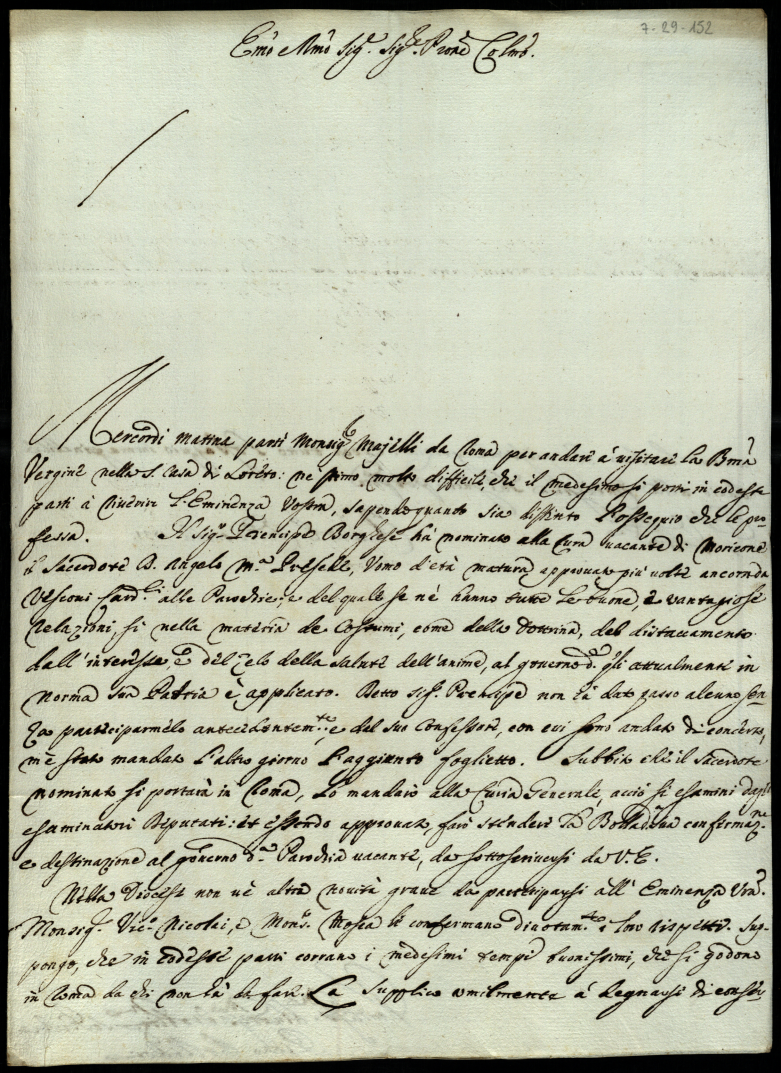 7-29-152
Em̃o e Rm̃o Sig.r Sig.re Prone Colmo.
Mercordi matina parti Monsig.re Majelli da Roma per andare á visitare la Bma
Vergine nella S. Casa di Loreto: ne stimo molto difficile, che il medesimo si porti in codeste
parti á riverire l'Eminenza Vostra, sapendo quanto sia distinto l'ossequio che le pro
fessa. Il Sig.r Prencipe Borghese há nominato alla Cura vacante di Moricone
il Sacerdote D. Angelo M.a Preselle, Uomo d'etá matura approvato piú volte ancor da
Vescovi Card.li alle Parochie; e del quale se ne hanno tutte le buone, e vantagiose
relazioni, si nella materia de Costumi, come della Dottrina, del distaccamento
dall'interesse, e del zelo della salute dell'anime, al governo d. quali attualmente in
Norma sua Patria é applicato. Detto Sig.r Prencipe non há dato passo alcuno sen
za participarmelo antecedentem.te, e dal suo Confessore, con cui sono andato di concerto,
m'é stato mandato l'altro giorno l'aggiunto foglietto. Subbito che il Sacerdote
nominato si portará in Roma, lo mandaró alla Curia Generale, acció si esamini dagl'
esaminatori Deputati: et essendo approvato, faró stendere la Bolla, da confermaz.ne
e destinazione al governo d.a Parochia vacante, da sottoscriversi da V.E.
Nella Diocesi non v'é altra novitá grave da participarsi all'Eminenza Vra.
Monsig.r Vic.o Nicolai, e Mons.r Mosca le confermano divotam.te i loro rispetti. Sup-
pongo, che in codeste parti corrano i medesimi tempi buonissimi, che si godono
in Roma da chi non há da fare. La supplico umilmente á degnarsi di conser